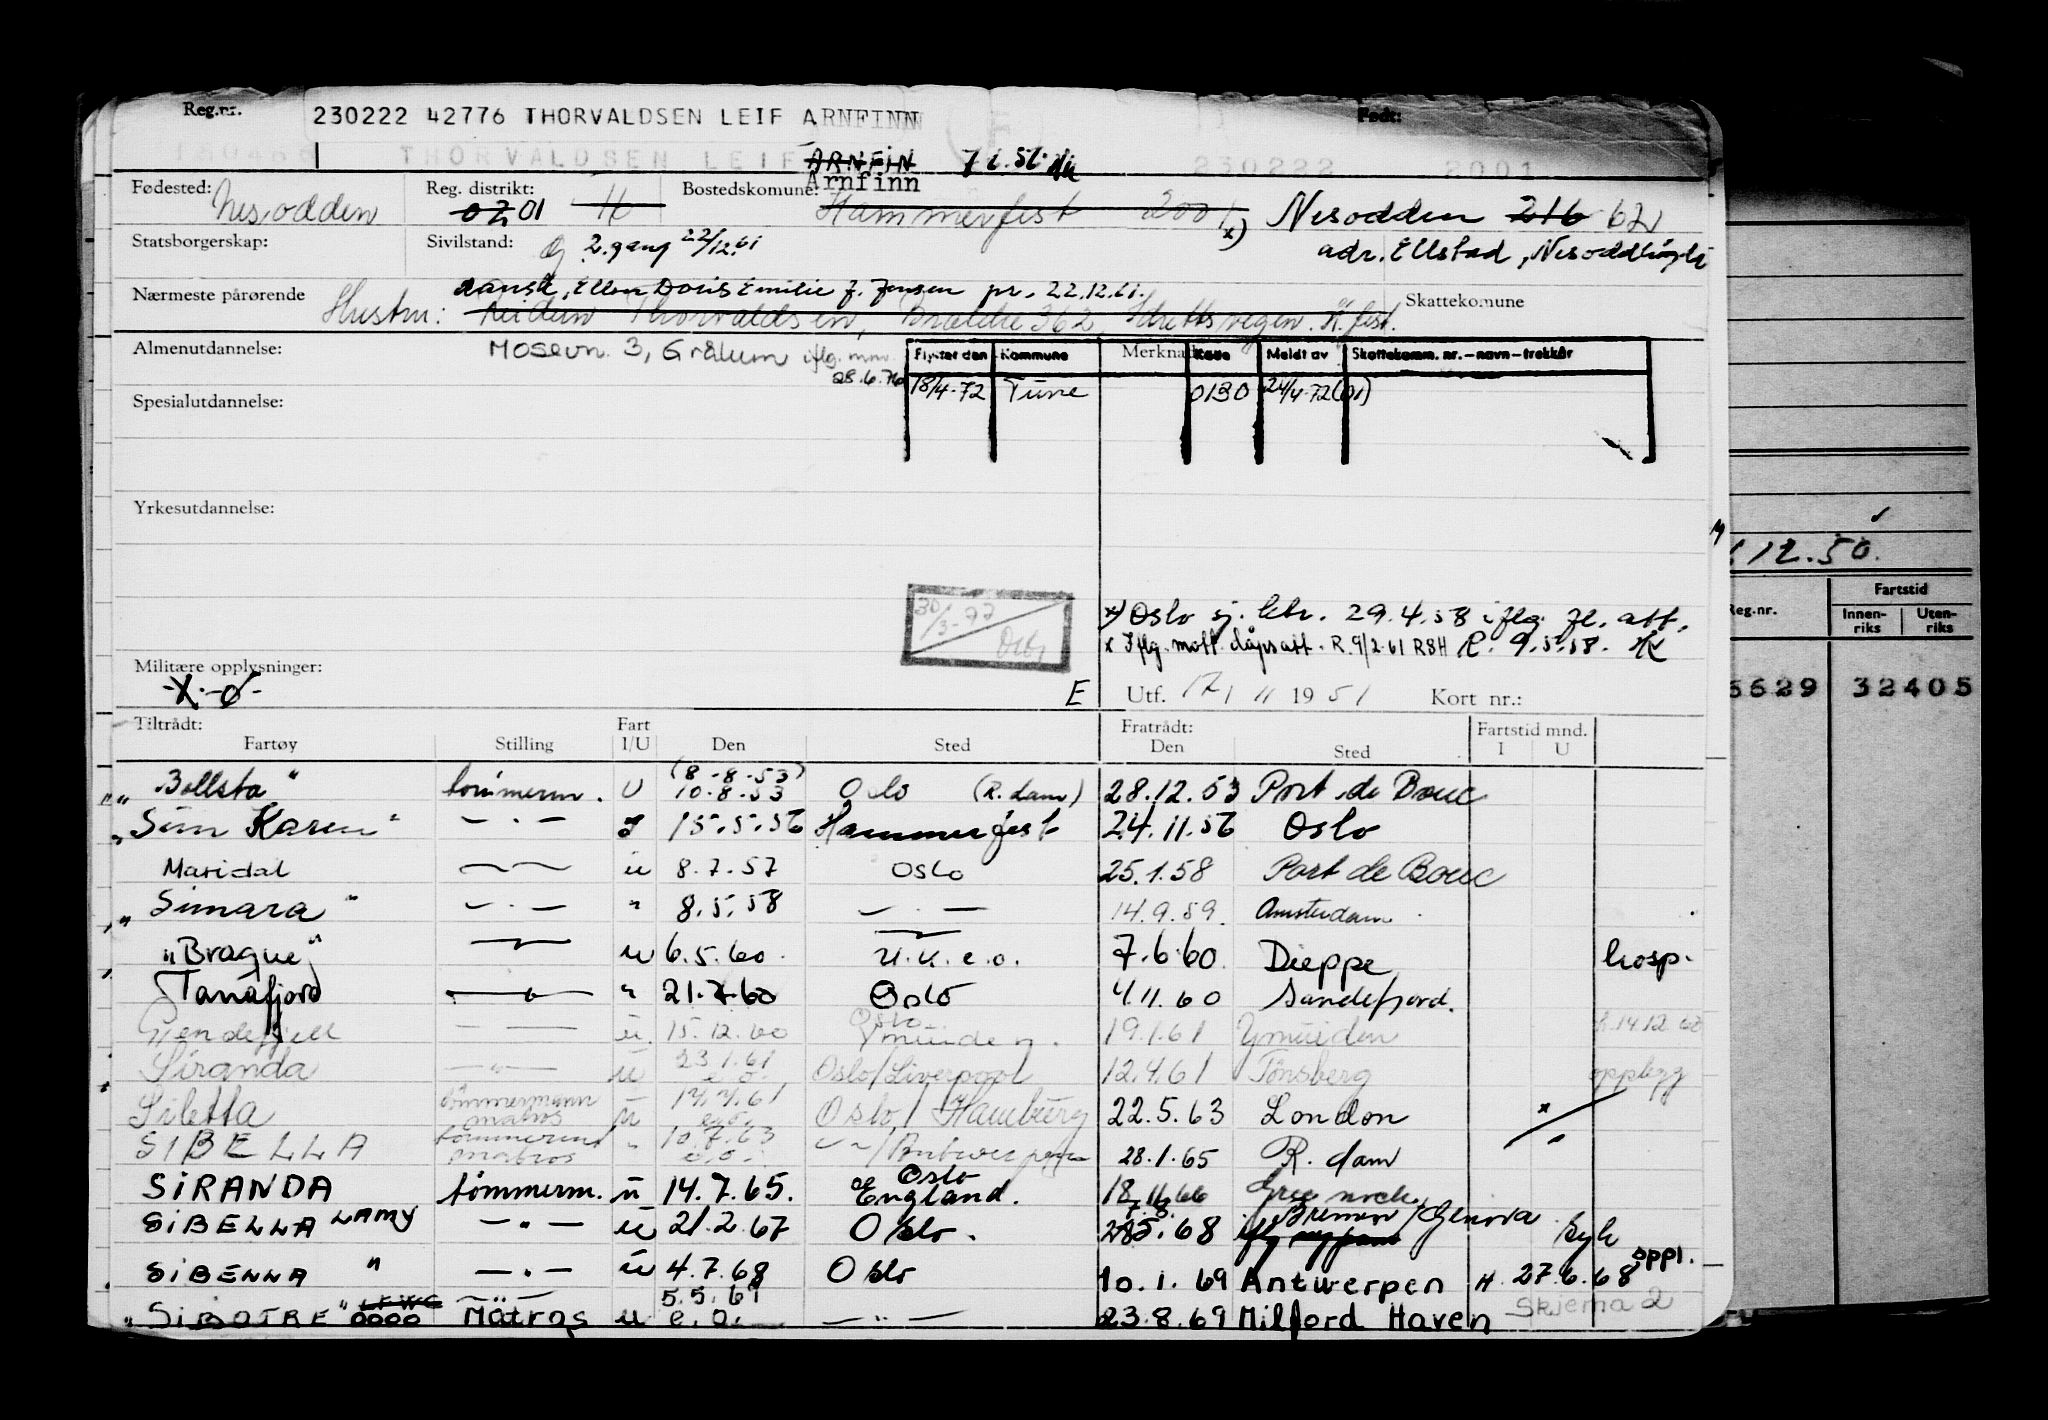 Reg.nr. 230222 42776 THORVALDSEN LEIF ARNFINN Født:
THORVALDSEN LEIF ARNFIN 230222 2001
Arnfinn
Fødested: Nesodden Reg. distrikt: 02 01 H Bostedskomune: Hammerfest 200 x) Nesodden 216 621
Statsborgerskap: Sivilstand: G 2.gang 22/12.61 adr. Ellstad,
dansk, Ellen Doris Emilie f. Jensen pr. 22.12.61.
Nærmeste pårørende Hustru: Thorvaldsen, 362, Skattekomune
Almenutdannelse: Mosevn. 3, Grålum iflg. mm. 28.6.76
Flyttet den Kommune Merknad Kode Meldt av Skattekomm. nr.–navn–trekkår
18/4-72 Tune 0130 24/4-72 (01)
Spesialutdannelse:
Yrkesutdannelse:
112.50.
Reg.nr. Fartstid
Innenriks Utenriks
30/3-77
x) Oslo sj. 29.4.58 iflg. fl. att.
x Iflg. mott. dåpsatt. R. 9/2-61 RSH R. 9.5.58.
Militære opplysninger:
-X.-Ø-
E Utf. 17/11 1951 Kort nr.:
5629 32405
Tiltrådt: Fart Fratrådt: Fartstid mnd.
Fartøy Stilling I/U Den Sted Den Sted I U
"Bollsta" tømmerm. U (8-8-53) 10.8.53 Oslo (R.dam) 28.12.53 Port de Bouc
"Sun Karen" — . — 15.5.56 Hammerfest 24.11.56 Oslo
Maridal — u 8.7.57 Oslo 25.1.58 Port de Bouc
"Simara" — . — " 8.5.58 — . — 14.9.59. Amsterdam
"Brague" — u 6.5.60. U.K. e.o. 7.6.60. Dieppe hosp.
Tanafjord — " 21.7.60 Oslo 4.11.60 Sandefjord.
Gjendefjell — — u. 15.12.60 Oslo Ymuiden. 19.1.61 Ymuiden 14.12.60
Siranda — " — u 23.1.61 e.o. Oslo/Liverpool 12.4.61 Tønsberg opplegg
Siletta tømmermann matros u 14.4.61 e.o. Oslo/Hamburg 22.5.63 London x
SIBELLA tømmermann matros " 10.7.63 e.o. — " —/Antwerpen 28.1.65 R.dam
SIRANDA tømmerm. u 14.7.65. Oslo el England. 18.11.66 Greenock
SIBELLA LAMY — " — u 21.2.67 Oslo. 5.68 Bremen/Genova syk
SIBELLA " — " — u 4.7.68 Oslo 10.1.69 Antwerpen H 27.6.68 oppl.
"SIBOTRE" Matros u 5.5.69 e.o. — " — 23.8.69 Milford Haven Skjema 2